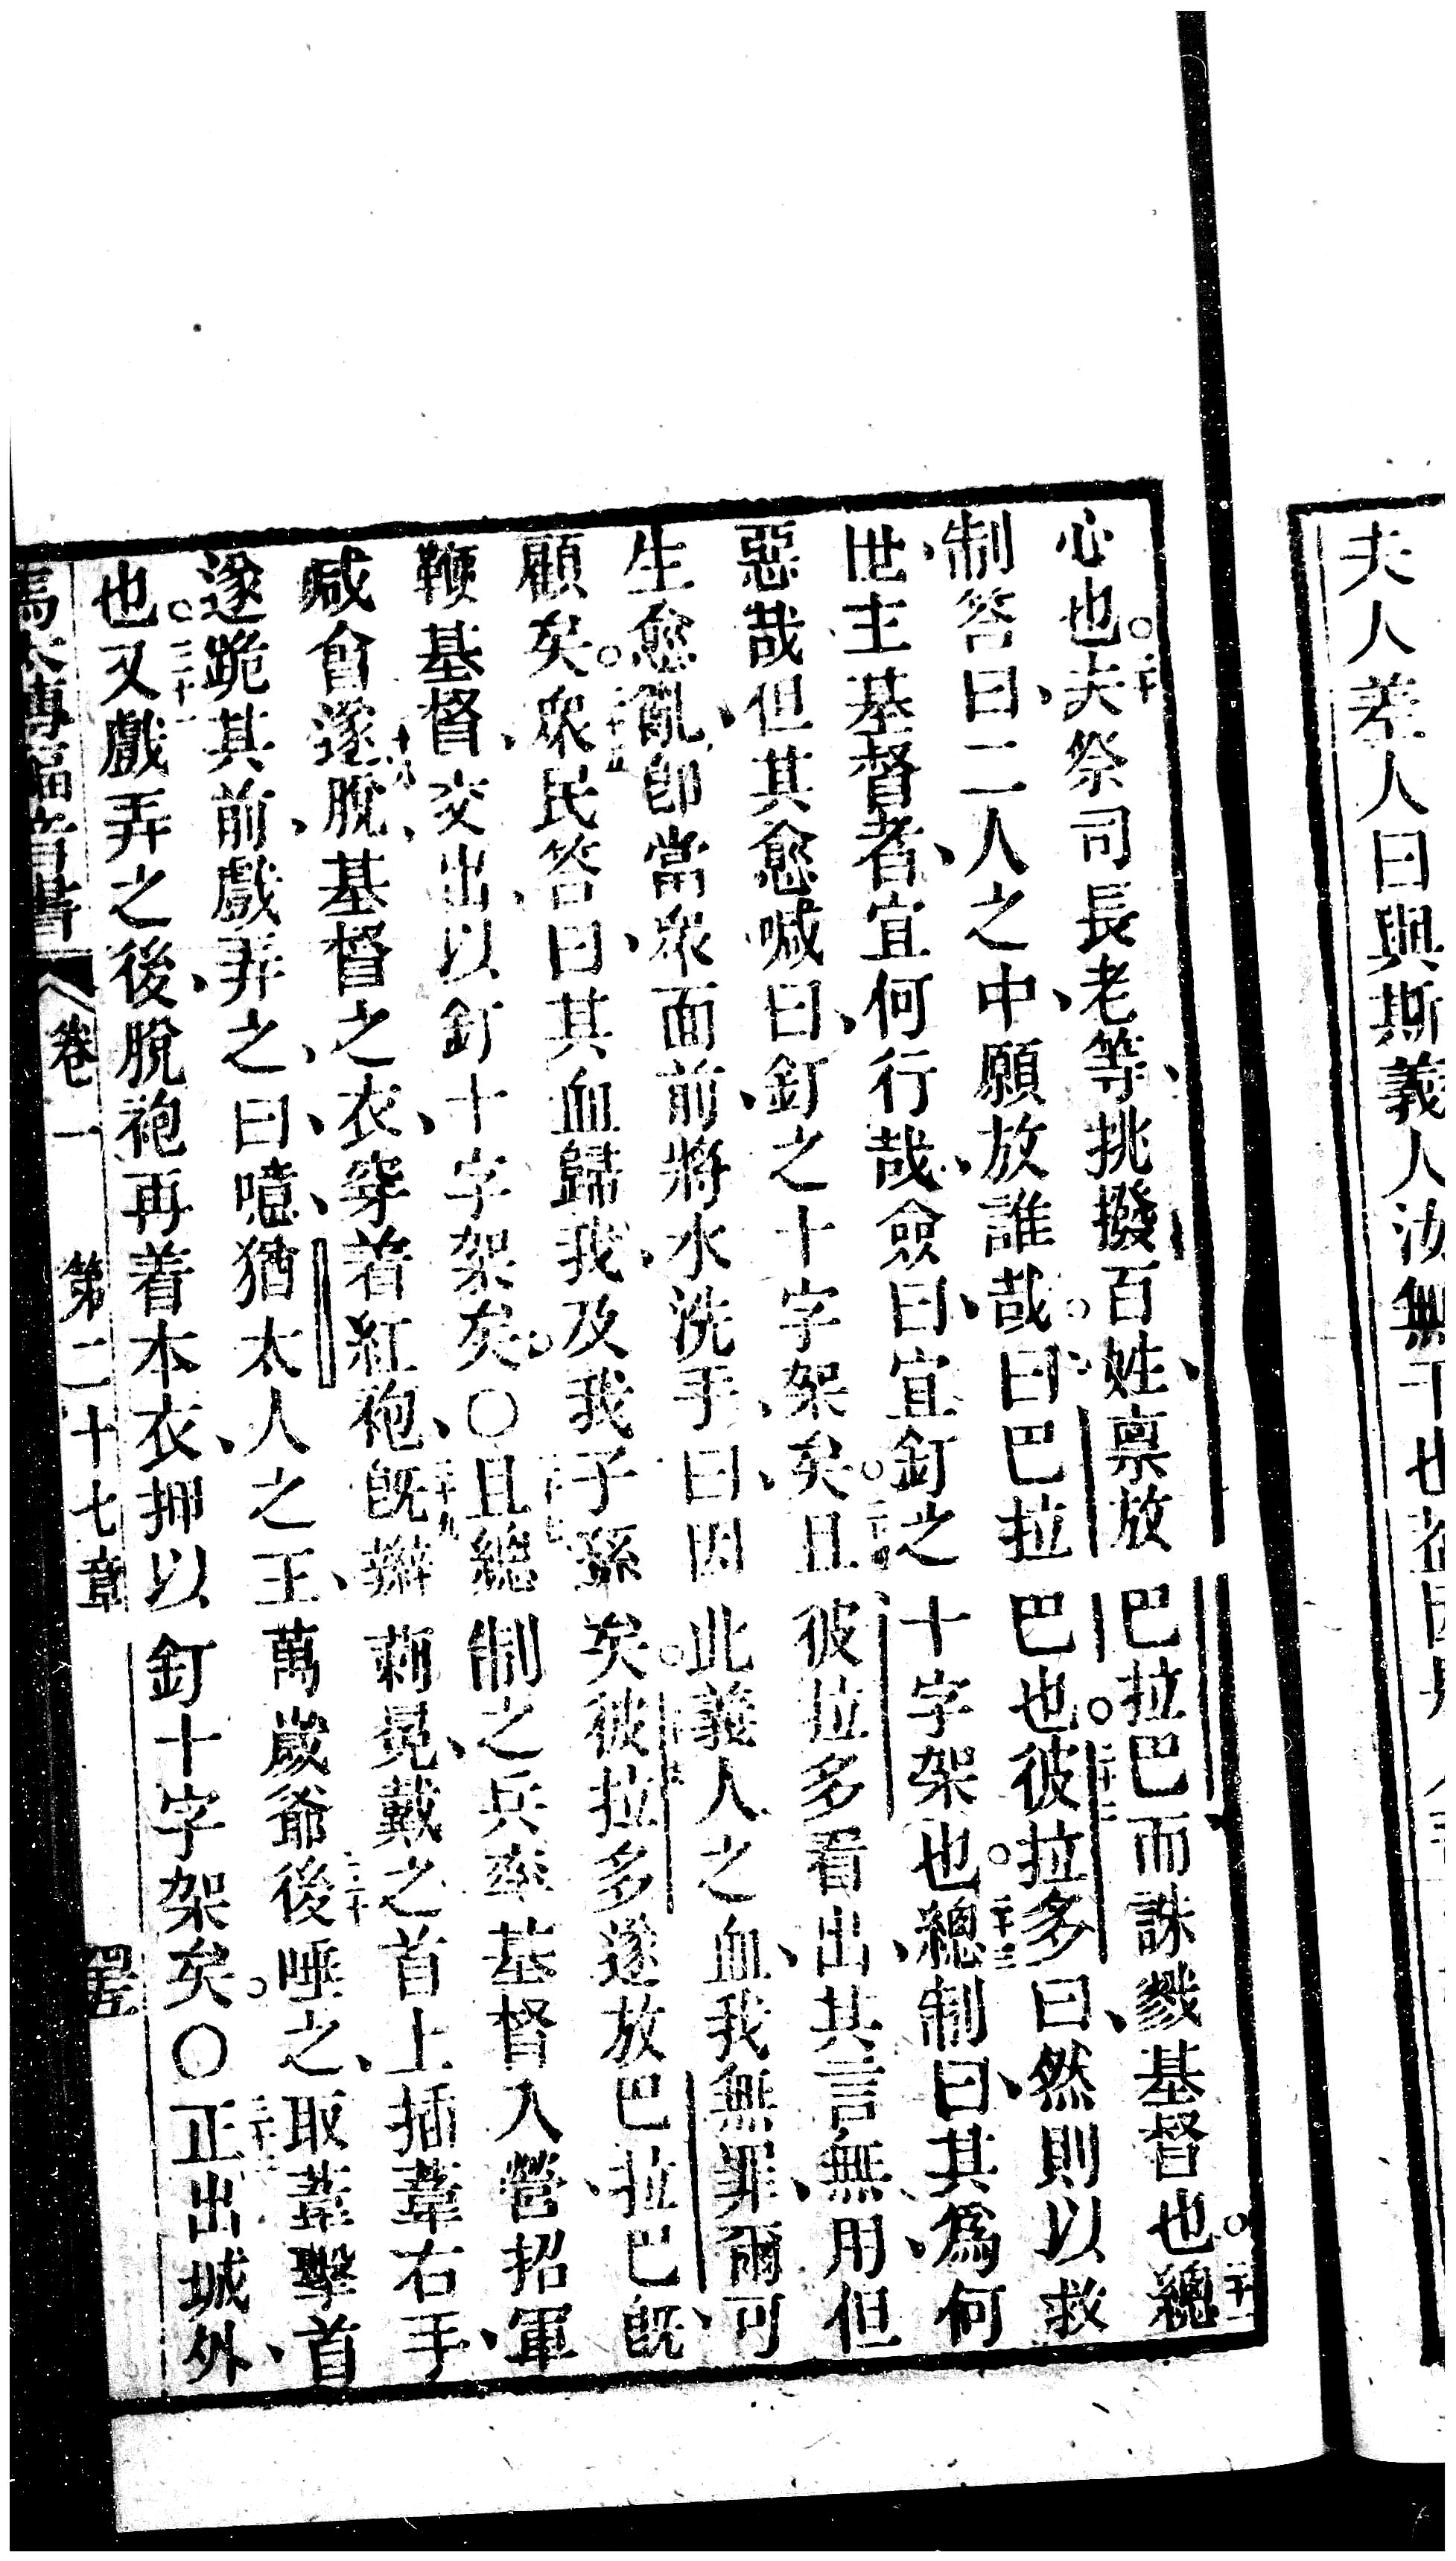 夫人差人曰與斯義人汝無干也
心也。二十夫祭司長老等、挑撥百姓、稟放巴拉巴而誅戮基督也。二十一總
制答曰、二人之中、願放誰哉。曰巴拉巴也。二十二彼拉多曰、然則以救
世主基督者、宜何行哉、僉曰、宜釘之十字架也。二十三總制曰、其爲何
惡哉、但其愈喊曰、釘之十字架矣。二十四且彼拉多看出其言無用、但
生愈亂、卽當衆面前、將水洗手、曰、因此義人之血、我無罪、爾可
顧矣。二十五衆民答曰、其血歸我、及我子孫矣。二十六彼拉多遂放巴拉巴、旣
鞭基督、交出以釘十字架矣。〇二十七且總制之兵率基督入營招軍
咸會、二十八遂脫基督之衣、穿着紅袍、二十九旣辮蕀冕、戴之首上、插葦右手、
遂跪其前、戲弄之、曰、噫、猶太人之王、萬歲爺、三十後唾之、取葦擊首
也。三十一又戲弄之後、脫袍再着本衣、押以釘十字架矣。〇三十二正出城外、
馬太傳福音書 卷一 第二十七章